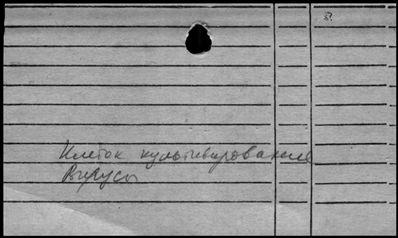 Клеток культивирование
Вирусы